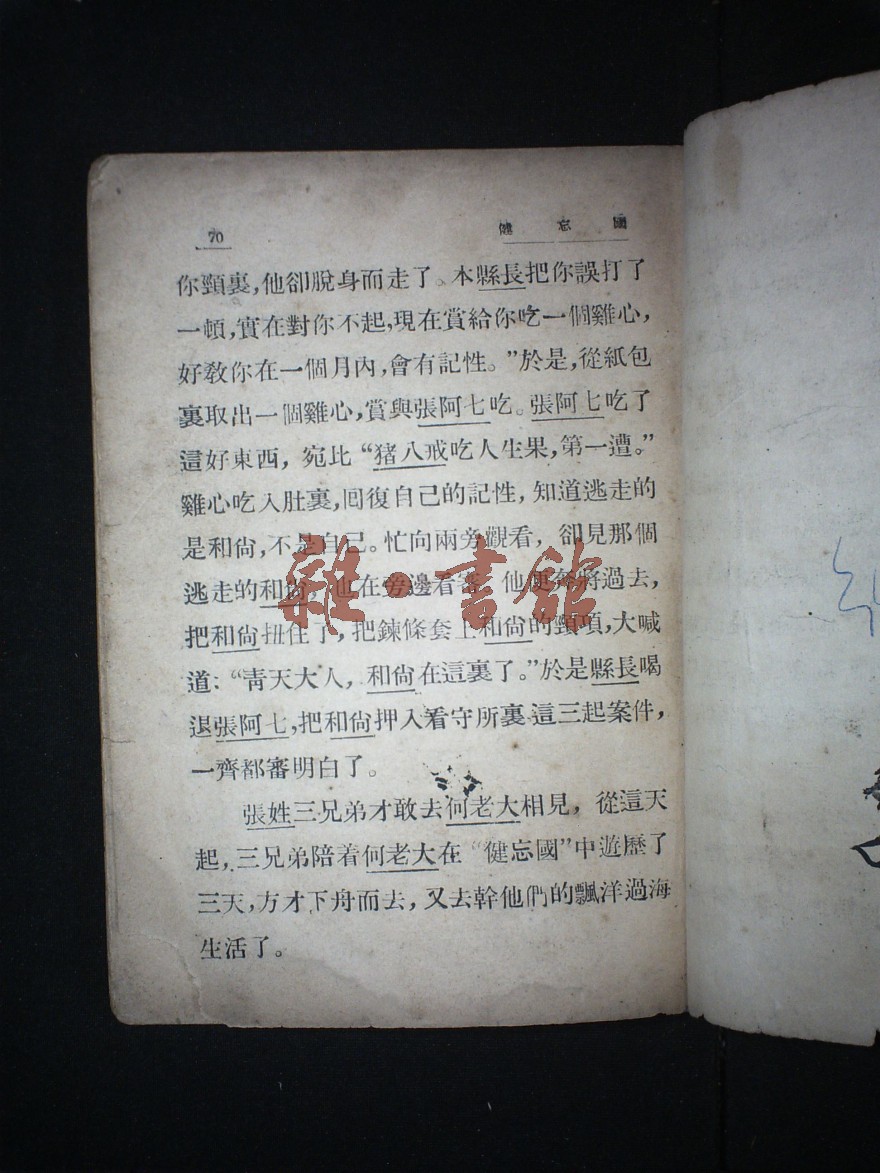 70
健忘國
你頸裏，他卻脫身而走了。本縣長把你誤打了
一頓，實在對你不起，現在賞給你吃一個雞心，
好敎你在一個月內，會有記性。”於是，從紙包
裏取出一個雞心，賞與張阿七吃。張阿七吃了
這好東西，宛比“猪八戒吃人生果，第一遭。”
雞心吃入肚裏，囘復自己的記性，知道逃走的
是和尙，不是自己。忙向兩旁觀看，卻見那個
逃走的和尙，也在旁邊看審，他便奔將過去，
把和尙扭住了，把鍊條套上和尙的頸項，大喊
道：“靑天大人，和尙在這裏了。”於是縣長喝
退張阿七，把和尙押入看守所裏這三起案件，
一齊都審明白了。
張姓三兄弟才敢去何老大相見，從這天
起，三兄弟陪着何老大在“健忘國”中遊歷了
三天，方才下舟而去，又去幹他們的飄洋過海
生活了。
雜·書館